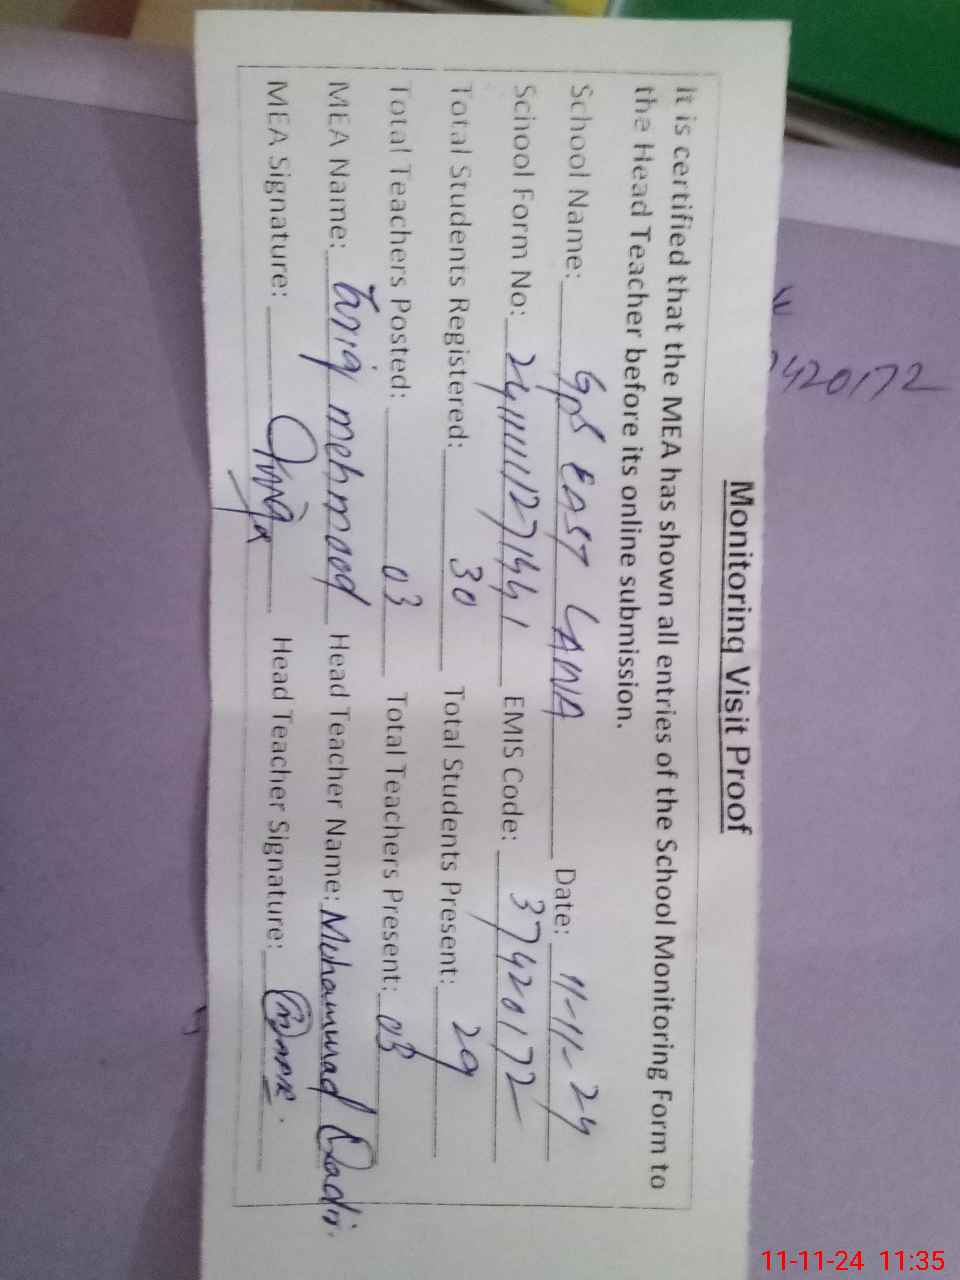 Monitoring Visit Proof
It is certified that the MEA has shown all entries of the School Monitoring Form to
the Head Teacher before its online submission.
School Name: GPS EAST LAWA Date: 11-11-24
School Form No: EMIS Code: 37420172
Total Students Registered: 30 Total Students Present: 29
Total Teachers Posted: 03 Total Teachers Present: 03
MEA Name: Tariq mehmood Head Teacher Name: Muhammad Qadir
MEA Signature: Head Teacher Signature:
420172
11-11-24 11:35